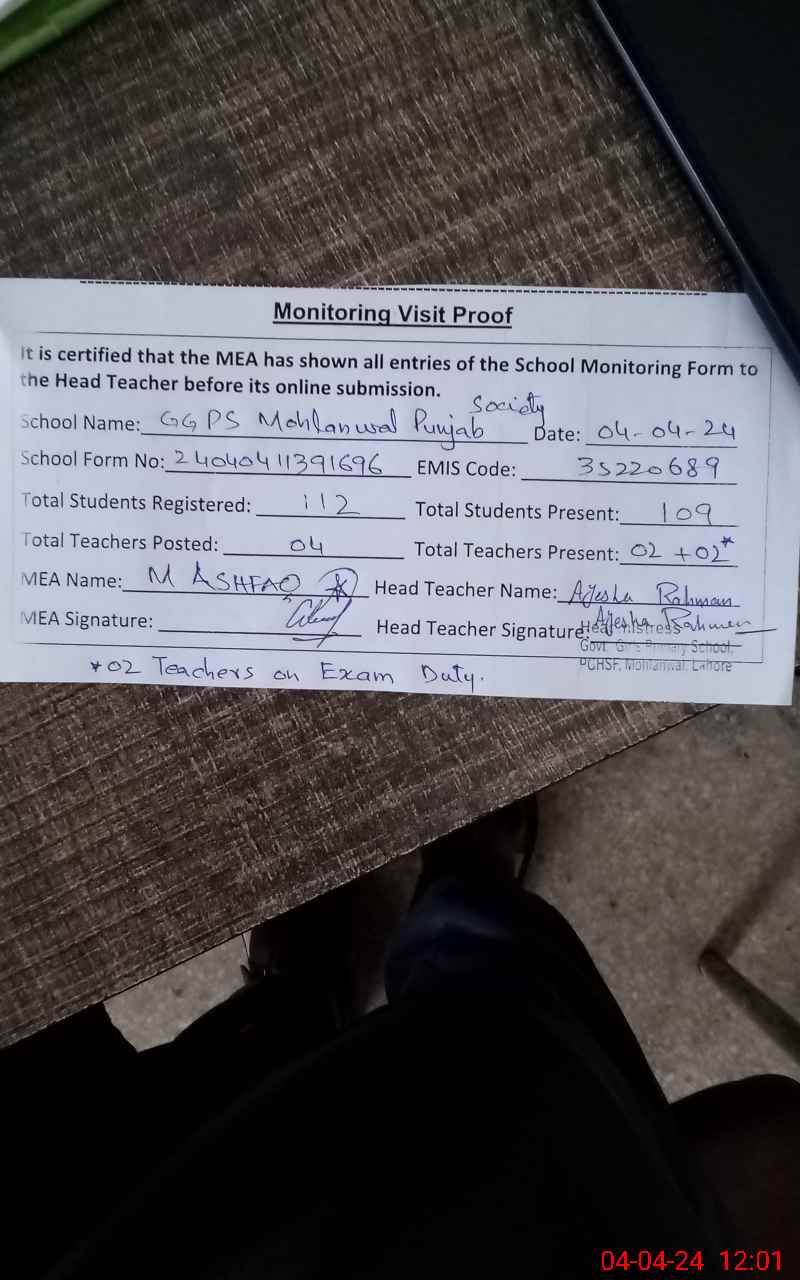 Monitoring Visit Proof
It is certified that the MEA has shown all entries of the School Monitoring Form to
the Head Teacher before its online submission.
School Name: GGPS Mohlanwal Punjab Society Date: 04-04-24
School Form No: 24040411391696 EMIS Code: 35220689
Total Students Registered: 112 Total Students Present: 109
Total Teachers Posted: 04 Total Teachers Present: 02 + 02*
MEA Name: M ASHFAQ Head Teacher Name: Ayesha Rahman
MEA Signature: Head Teacher Signature: Ayesha Rahman
Headmistress
Govt. Girls Primary School,
PCHSF, Mohlanwal, Lahore
*02 Teachers on Exam Duty.
04-04-24 12:01